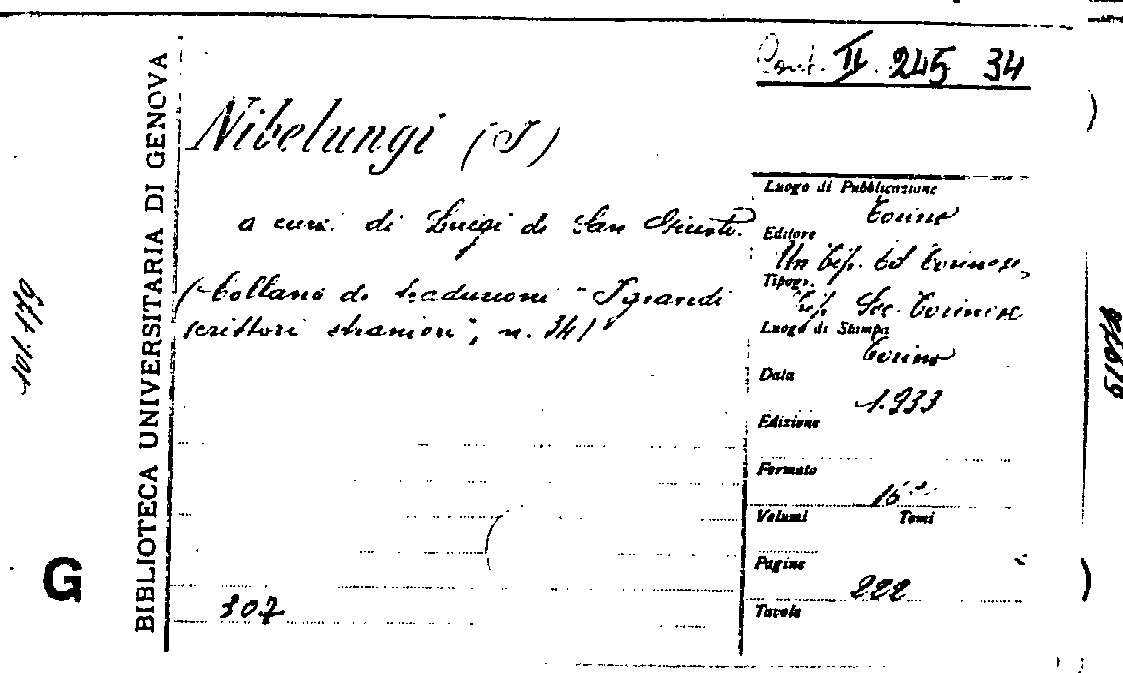 Cont. II. 245 34
Nibelungi (I)
a cura di Luigi di San Giusto.
(Collana di traduzioni "I grandi
scrittori stranieri", n. 34)
307
BIBLIOTECA UNIVERSITARIA DI GENOVA
G
Luogo di Pubblicazione
Torino
Editore
Un Tip. Ed Torinese,
Tipogr.
Tip. Soc. Torinese
Luogo di Stampa
Torino
Data
1.933
Edizione
Formato
16°
Volumi Tomi
Pagine
222
Tavole